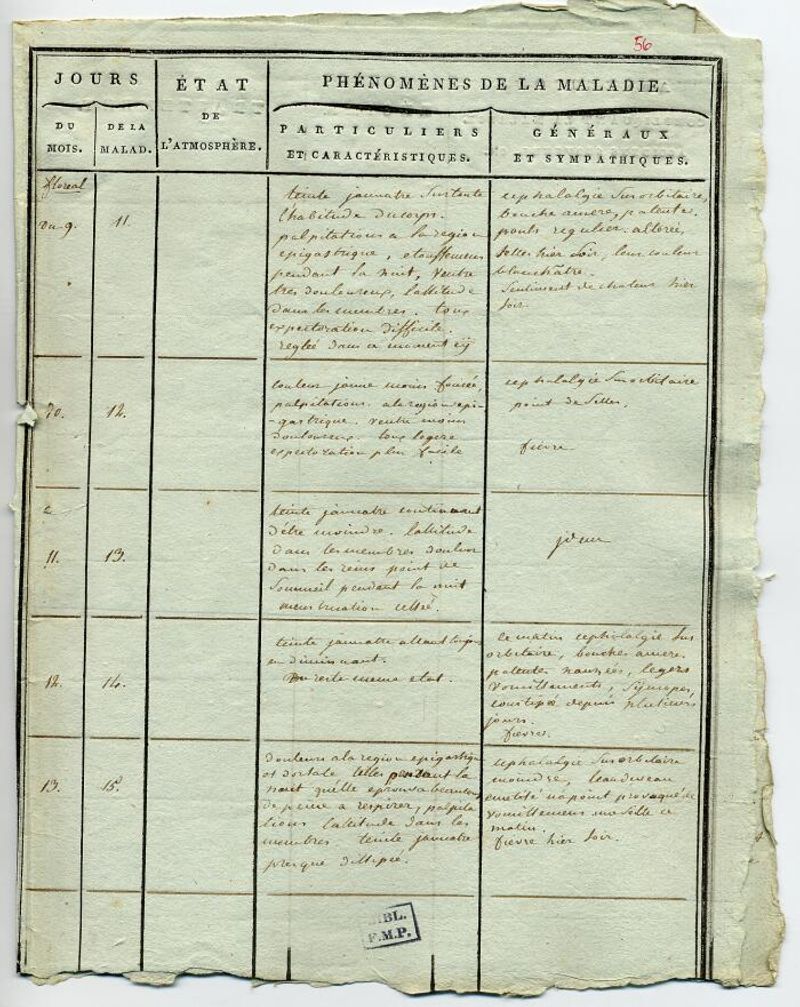 56
JOURS
DU MOIS.
DE LA MALAD.
ÉTAT
DE
L'ATMOSPHÈRE.
PHÉNOMÈNES DE LA MALADIE
PARTICULIERS
ET CARACTÉRISTIQUES.
GÉNÉRAUX
ET SYMPATHIQUES.
floreal
Du 9.
11.
teinte jaunatre sur toute
l'habitude du corps.
palpitations a la region
epigastrique, etouffemens
pendant la nuit, ventre
tres douloureux, lattitude
dans les membres. toux
expectoration difficile.
reglée dans ce moment cy
cephalalgie susorbitaire,
bouche amere, pateuse.
pouls regulier. alterée,
selles hier soir, leur couleur
blanchâtre.
Sentiment de chaleur hier
soir.
10.
12.
couleur jaune moins foncée,
palpitations a la region epi-
gastrique. ventre moins
douloureux. toux legere
expectoration plus facile
cephalalgie susorbitaire
point de selles.
fievre
11.
13.
teinte jaunatre continuant
d'être moindre. lattitude
dans les membres douleur
dans les reins point de
Sommeil pendant la nuit
menstruation cessée.
idem
12.
14.
teinte jaunatre allant toujours
en diminuant.
Du reste meme etat.
ce matin cephalalgie sus
orbitaire, bouche amere.
pateuse nausées, legers
vomissements, Syncopes,
constipée depuis plusieurs
jours.
fievre.
13.
15.
douleurs a la region epigastrique
et dorsale telles pendant la
nuit qu'elle eprouva beaucoup
de peine a respirer, palpita-
tions lattitude dans les
membres teinte jaunatre
presque dissipée.
cephalalgie susorbitaire
moindre, l'eau de veau
emetisé n'a point provoqué de
vomissemens une selle ce
matin.
fievre hier soir.
BIBL.
F.M.P.